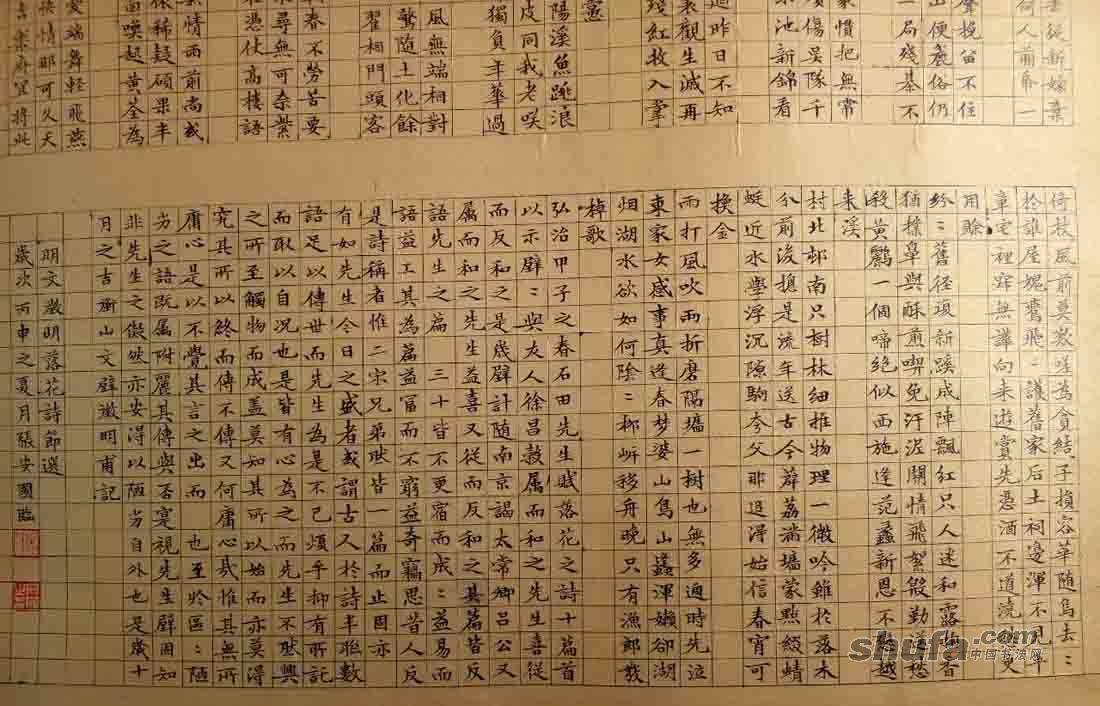 去從新嫁棄
何人前席一
挽留不住
俗仍
一局殘棊不
家慣把無常
傷吴隊千
池新錦看
昨日不知
觀生滅再
殘紅收入掌
陽溪魚跳浪
皮同我老咲
獨負年華過
風無端相對
驚隨土化餘
翟相門頭客
春不勞苦要
尋無可奈紫
憑仗高樓語
情西前尚或
依稀疑碩果半
喚起黃荃為
愛端舞輕飛燕
快情那可久天
樂府宜將此
倚杖風前莫嗟為貪結子損容華隨鳥去〻
於誰屋塊蠧飛〻護舊家后土祠邊渾不見平
章宅裡寂無譁向来遊賞先憑酒不道澆愁又
用賒
紛〻舊徑瑣新蹊成陣飄紅只人迷和露香
猶撩鼻與酥煎喫免汙泥關情飛絮殷勤送愁
殺黃鸝一個啼絕似西施逢范蠡新恩不越
来溪
村北邨南只樹林細推物理一微吟雖於落未
分前後捴是流年送古今薜荔滿墻蒙點綴蜻
蜓近水學浮沉隙駒夸父非追浔始信春宵可
換金
雨打風吹雨折磨隔墻一樹也無多過時先泣
東家女感事真逢春梦婆山鳥山蠭渾嬾卻湖
烟湖水欲如何陰〻邨㟁移舟晚只有漁郎發
棹歌
弘治甲子之春石田先生賦落花之詩十篇首
以示壁〻與友人徐昌穀属而和之先生喜從
而反和之是歲壁計随南京謁太常卿吕公又
属而和之先生益喜又從而反和之其篇皆反
語先生之篇三十皆不更宿而成〻益易而
語益工其為篇益富而不窮益奇竊思昔人
是詩稱者惟二宋兄弟然皆一篇而止固亦
有如先生今日之盛者或謂古人於詩半聮數
語足以傳世而先生為是不已煩乎抑有所託
而取以自況也是皆有心為之而先生不然興
之所至觸物而成盖莫知其所以始而亦莫得
究其所以終而傳不傳又何庸心㢤惟其無所
庸心是以不覺其言之出而也至於區〻陋
劣之語既属附麗其傳與否寔視先生壁固知
非先生之儗然亦安得以陋劣自外也是歲十
月之吉衡山文壁徵明甫記
明文徵明落花詩節選
歲次丙申之夏月張安國臨
shufa.com
中国书法网